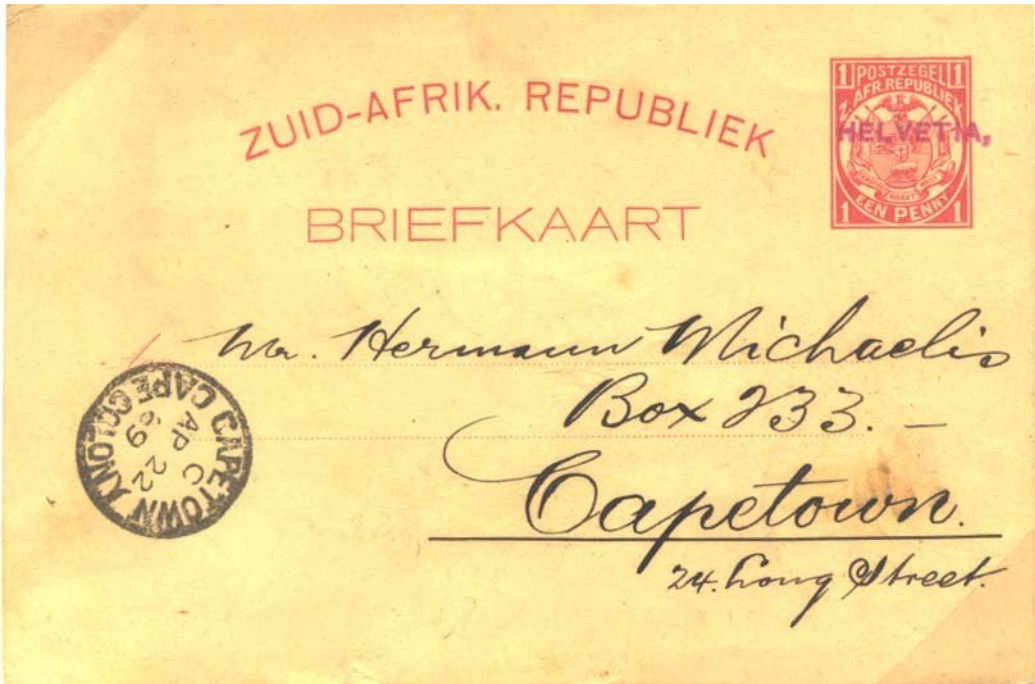 ZUID-AFRIK. REPUBLIEK
BRIEFKAART
1 POSTZEGEL 1
Z. AFR. REPUBLIEK
HELVETIA,
1 EEN PENNY 1
Mr. Hermann Michaelis
Box 233. –
Capetown.
24. Long Street.
CAPETOWN CAPE COLONY
C
AP 22